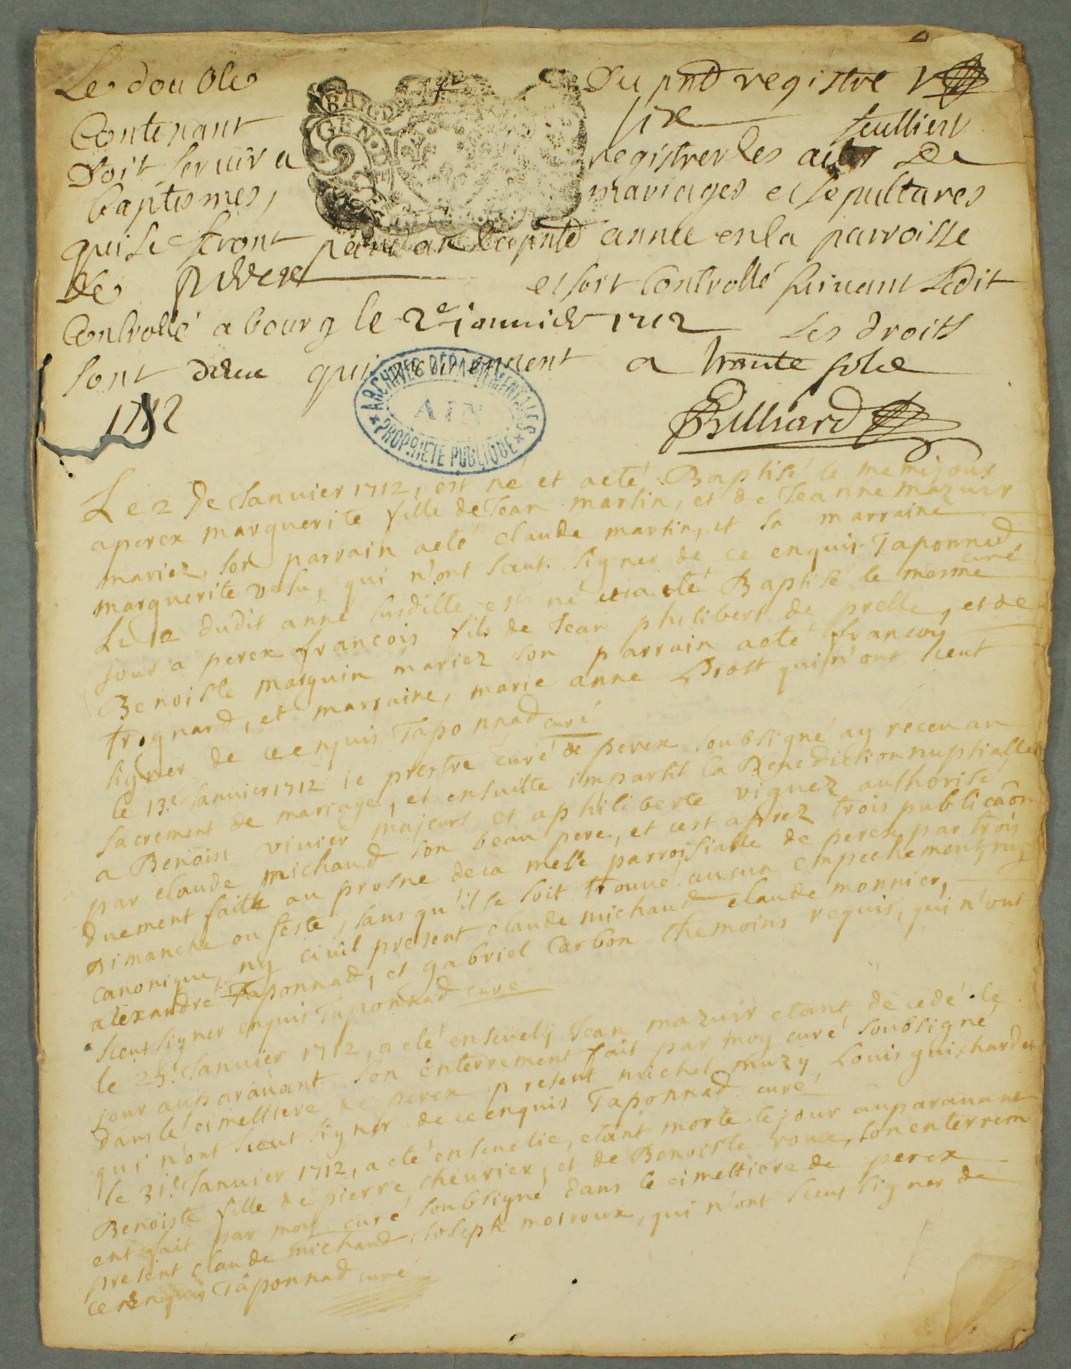 Le double Du pnt registre
Contenant six feulliets
Doit servir a registrer les actes de
baptismes, mariages et sepultures
qui se feront pendant la pnte année en la parroisse
de Perex et soit Controllé suivant Ledit
Controllé a bourg le 2e janvier 1712 les droits
sont qui a trante sols
1712 Billiard
GEN
ARCHIVES DÉPARTEMENTALES
AIN
PROPRIÉTÉ PUBLIQUE
Le 2 de Janvier 1712, est né et aeté Baptisé le memejour
aperex marguerite fille de Jean martin, et de Jeanne mazuir
mariez, son parrain aeté claude martin, et sa marraine
marguerite qui n'ont sceut signer de ce enquis Taponnad
curé
Le dudit anné susditte est né et a eté Baptisé le mesme
jour a perex françois fils de Jean philibert de prelle, et de
Benoiste marguin mariez son parrain aeté françois
frognard, et marraine, marie anne Brost qui n'ont sceut
signer de ce enquis Taponnad curé
le 13e Janvier 1712 ie prestre curé de perex soubsigné ay receu au
sacrement de mariage, et ensuitte impartit la Benediction nuptialle
a Benoin vivier majeurs, et a philiberte viguez authorisé
par claude michaud son beau pere, et cest aprez trois publicâôn
duement faitte au prosne de la messe parroissialle de perex par trois
dimanche ou feste, sans qu'il se soit trouvé aucun empechement, ny
canonique, ny civil present claude michaud claude monnier,
alexandre Taponnad, et gabriel Carbon themoins requis, qui n'ont
sceut signer enquis Taponnad curé
le 25e Janvier 1712, a eté ensevely Jean mazuir etant decedé le
jour auparavant son enterrement fait par moy curé soubsigné
dans le cimettiere de perex present michel muzy Louis guichard
qui n'ont sceut signer de ce enquis Taponnad curé
le 31e Janvier 1712, a eté ensevelie, etant morte le jour auparavant
Benoiste fille de pierre chevrier, et de Benoiste roux, son enterrem
ent fait par moy curé soubsigné dans le cimettiere de perex
present claude michaud, Joseph moiroux, qui n'ont sceut signer de
ce enquis Taponnad curé